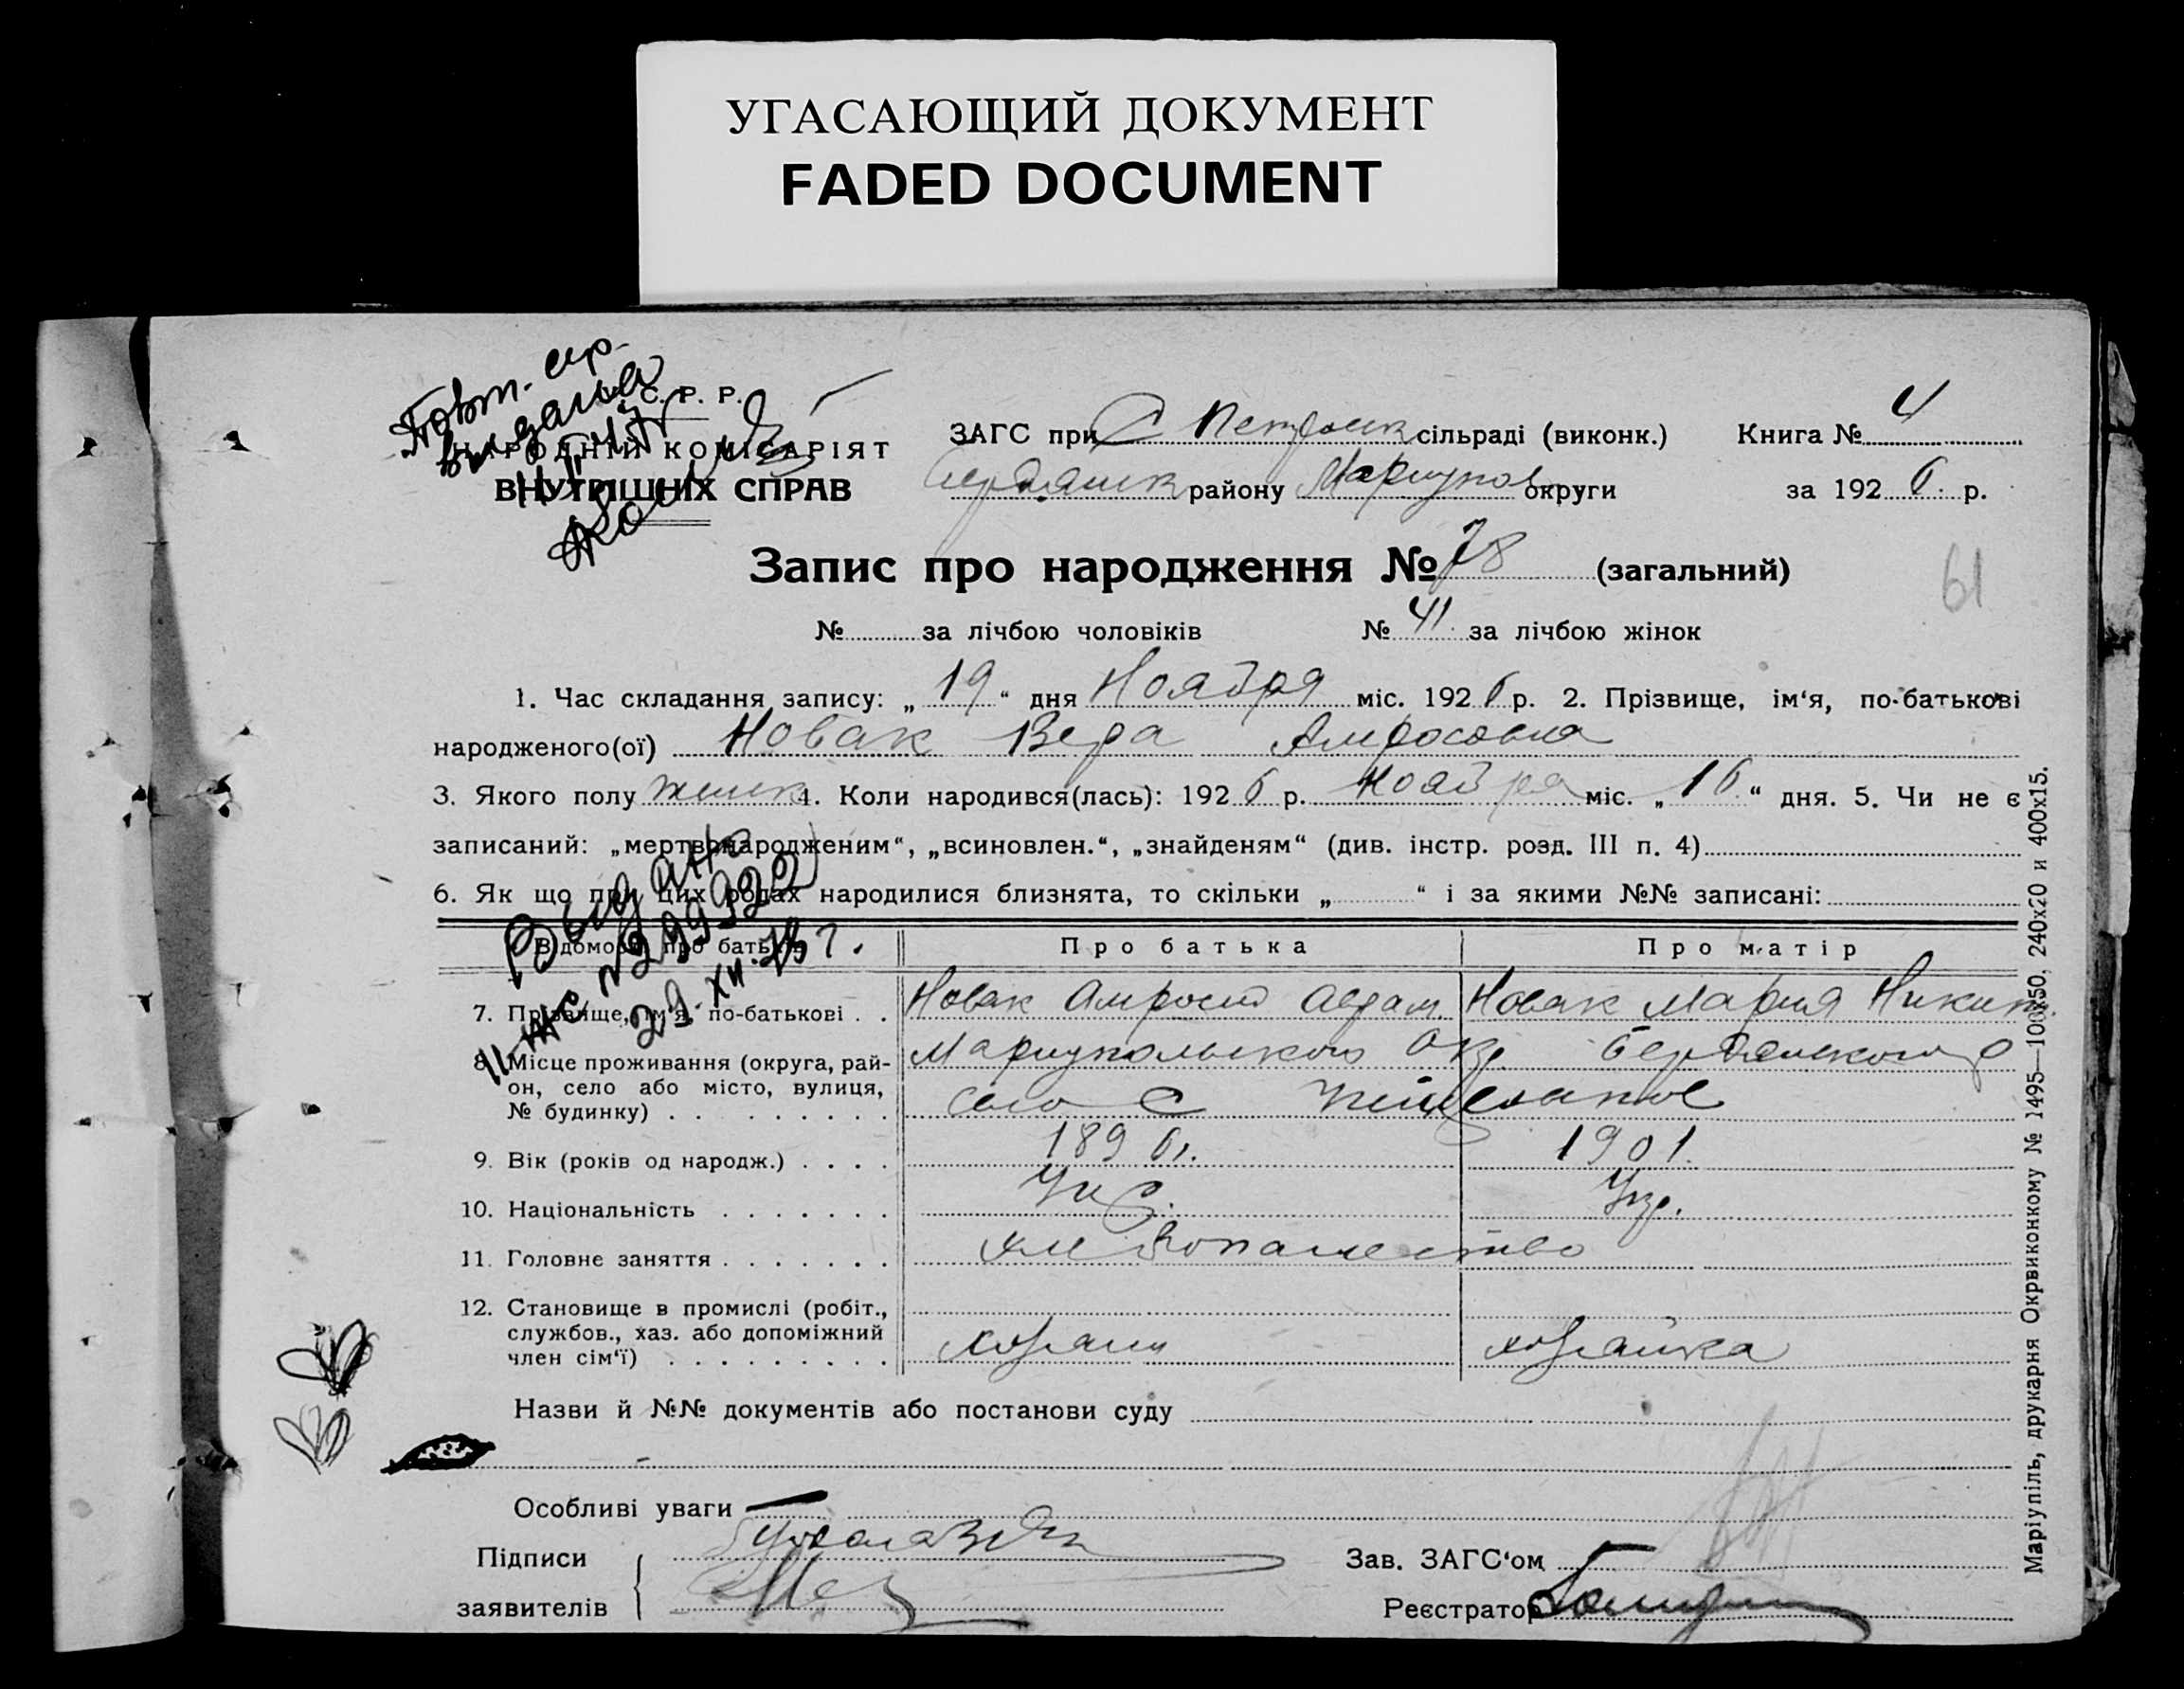 УГАСАЮЩИЙ ДОКУМЕНТ
FADED DOCUMENT
Повт.
видана
С. Р. Р.
НАРОДНІЙ КОМІСАРІЯТ
ВНУТРІШНІХ СПРАВ
ЗАГС при С Петровск сільраді (виконк.) Книга № 4
Бердянск району Мариупол округи за 192 6 р.
Запис про народження № 78 (загальний)
61
№ за лічбою чоловіків № 41 за лічбою жінок
1. Час складання запису: „ 19 “ дня Ноября міс. 192 6 р. 2. Прізвище, ім‘я, по-батькові
народженого(ої) Новак Вера Амросовна
3. Якого полу женск 4. Коли народився(лась): 192 6 р. Ноября міс. „ 16 “ дня. 5. Чи не є
записаний: „мертвонародженим“, „всиновлен.“, „знайденям“ (див. інстр. розд. III п. 4)
6. Як що при цих родах народилися близнята, то скільки „ “ і за якими №№ записані:
Выдано
II-ЖС № 299922
29 XII.73 г.
Відомості про батьків Про батька Про матір
7. Прізвище, ім‘я, по-батькові . . Новак Амросий Авдам. Новак Мария Никит.
8. Місце проживання (округа, рай- Мариупольского Окр. Бердянского р
он, село або місто, вулиця, село С
№ будинку) . . . . . . . .
9. Вік (років од народж.) . . . . 1896 г. 1901.
10. Національність . . . . . . . Укр. Укр.
11. Головне заняття . . . . . . . хлебопашество
12. Становище в промислі (робіт.,
службов., хаз. або допоміжний
член сім‘ї) . . . . . . . . . хозяин хозяйка
Назви й №№ документів або постанови суду
Особливі уваги
Підписи
заявителів
Зав. ЗАГС‘ом
Реєстратор
Маріупіль, друкарня Окрвиконкому № 1495—100х50, 240х20 и 400х15.